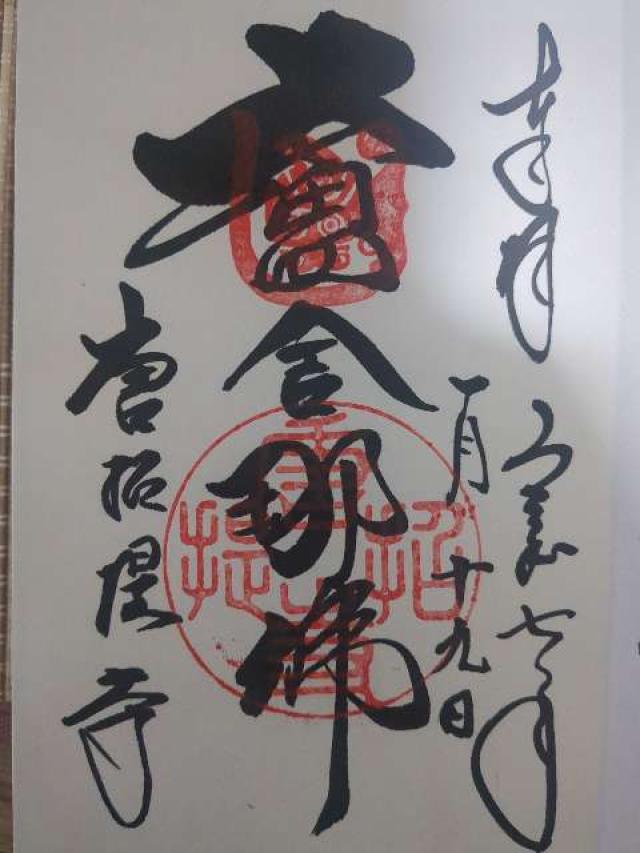 奉拝
令和七年
一月十九日
盧舎那佛
唐招提寺